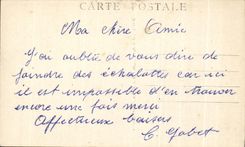 CARTE POSTALE
Ma chère Amie
J'ai oublié de vous dire de
joindre des échalottes car ici
il est impossible d'en trouver
encore une fois merci
Affectueux baisers
C. Gobet